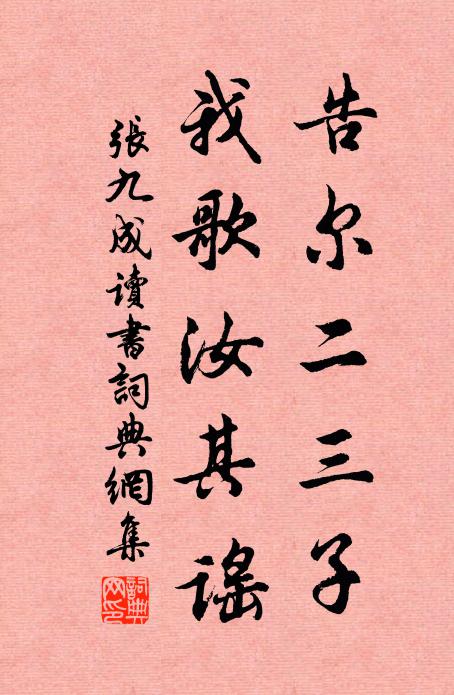 告尔二三子
我歌汝其謡
張九成讀書詞典網集
詞典
网印